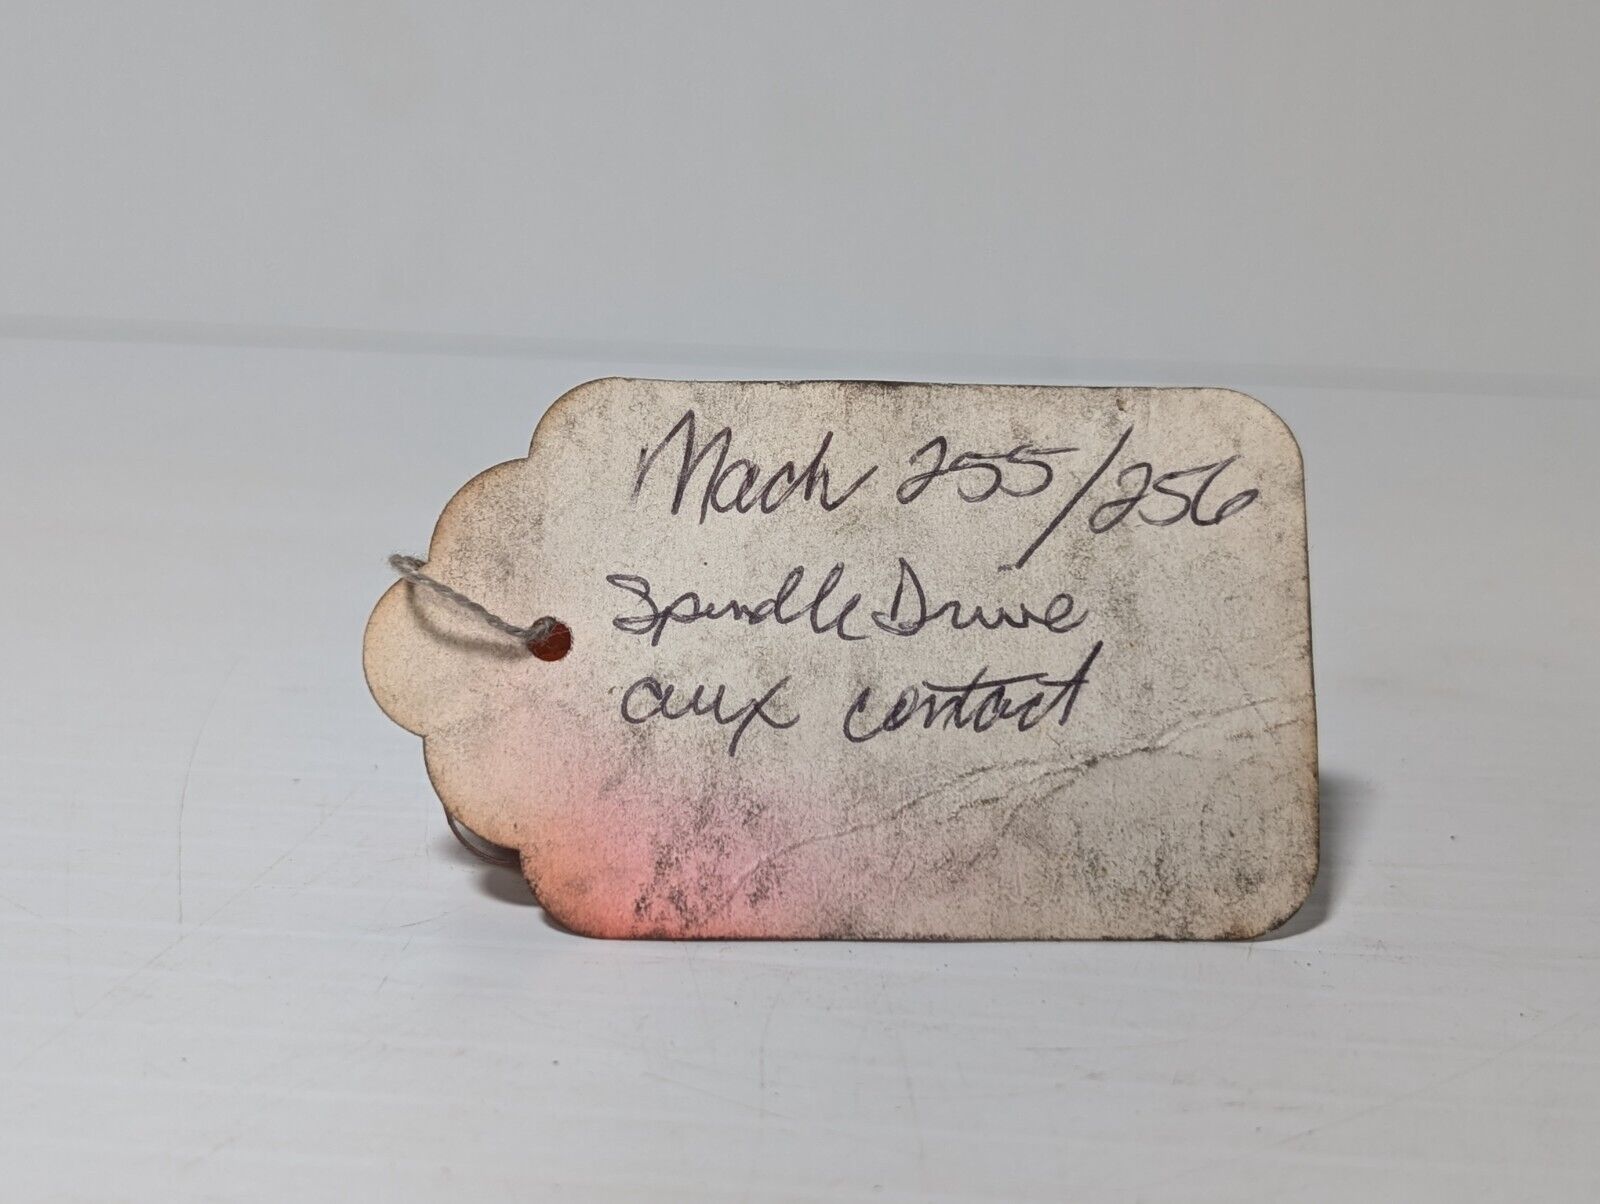 Mach 255/256
Spindle Drive
aux contact